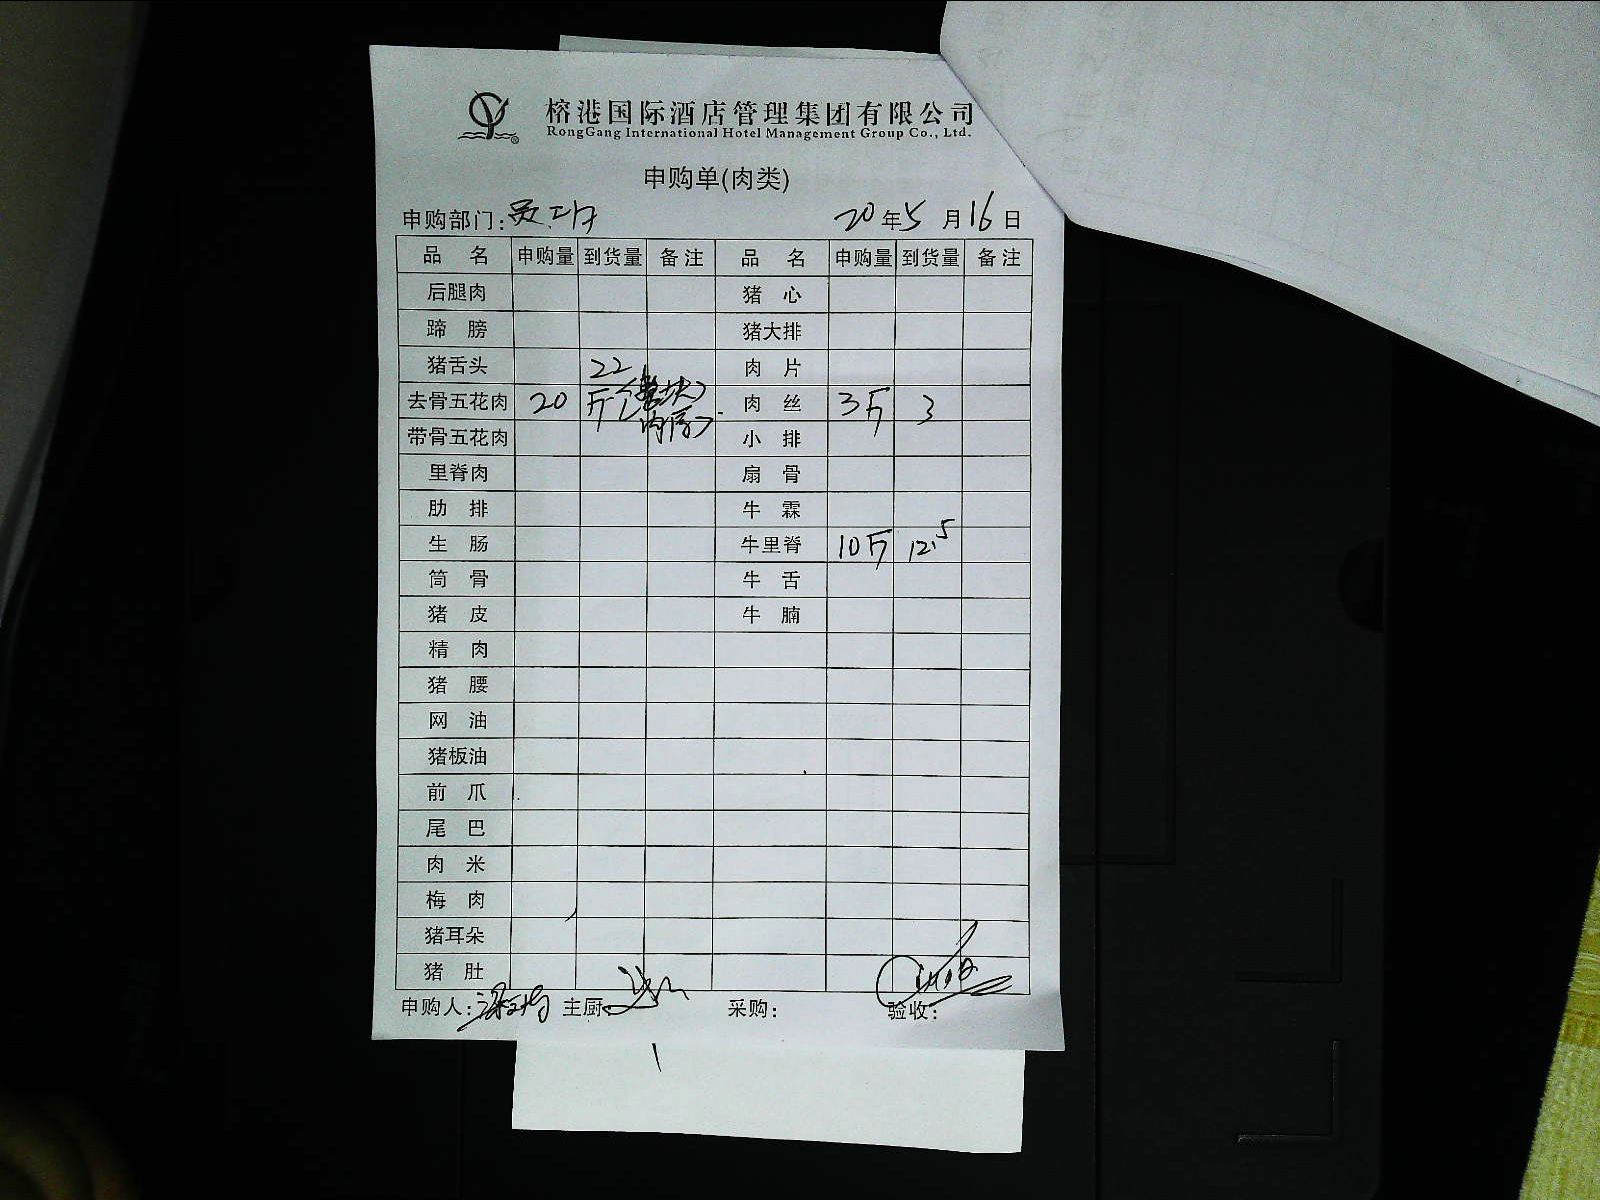 榕港国际酒店管理集团有限公司
RongGang International Hotel Management Group Co., Ltd.
申购单(肉类)
申购部门: 20年5月16日
品名 申购量 到货量 备注 品名 申购量 到货量 备注
后腿肉 猪心
蹄膀 猪大排
猪舌头 22 肉片
去骨五花肉 20 斤(整块) 肉丝 3斤 3
带骨五花肉 小排
里脊肉 扇骨
肋排 牛霖
生肠 牛里脊 10斤 12.5
筒骨 牛舌
猪皮 牛腩
精肉
猪腰
网油
猪板油
前爪
尾巴
肉米
梅肉
猪耳朵
猪肚
申购人: 主厨: 采购: 验收: